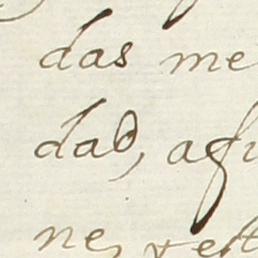 das me
dad, afi
ne, rest